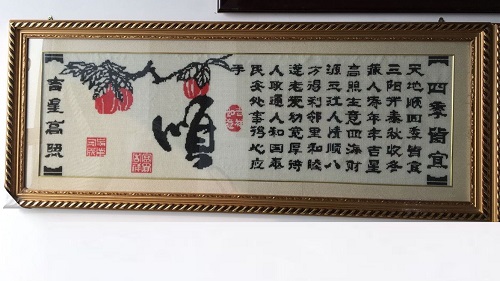 四季皆宜
天地順四季皆宜
三阳开泰秋收冬
藏人寿年丰吉星
高照生意四海财
源人情順八
方得利邻里和睦
老爱幼宽厚待
人政通人和国泰
民安处事得心应
手
順
吉星高照